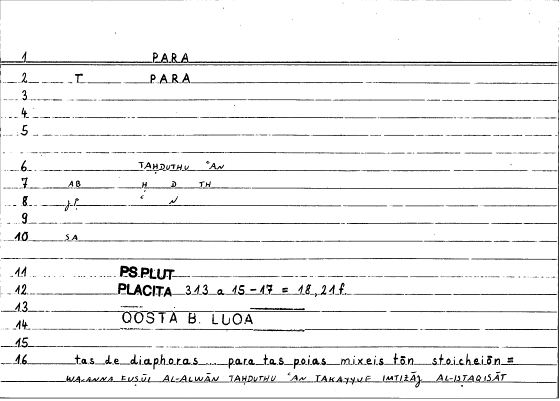 1 PARA
2 T PARA
3
4
5
6 TAḤDUTHU ʿAN
7 AB Ḥ D TH
8 J.P. ʿ N
9
10 SA
11 PS.PLUT
12 PLACITA 313 a 15-17 = 18,21f.
13
14 QOSTĀ B. LUQA
15
16 tas de diaphoras ... para tas poias mixeis tōn stoicheiōn =
WA-ANNA FUṢŪL AL-ALWĀN TAḤDUTHU ʿAN TAKAYYUF IMTIZĀǦ AL-ISTAQISĀT